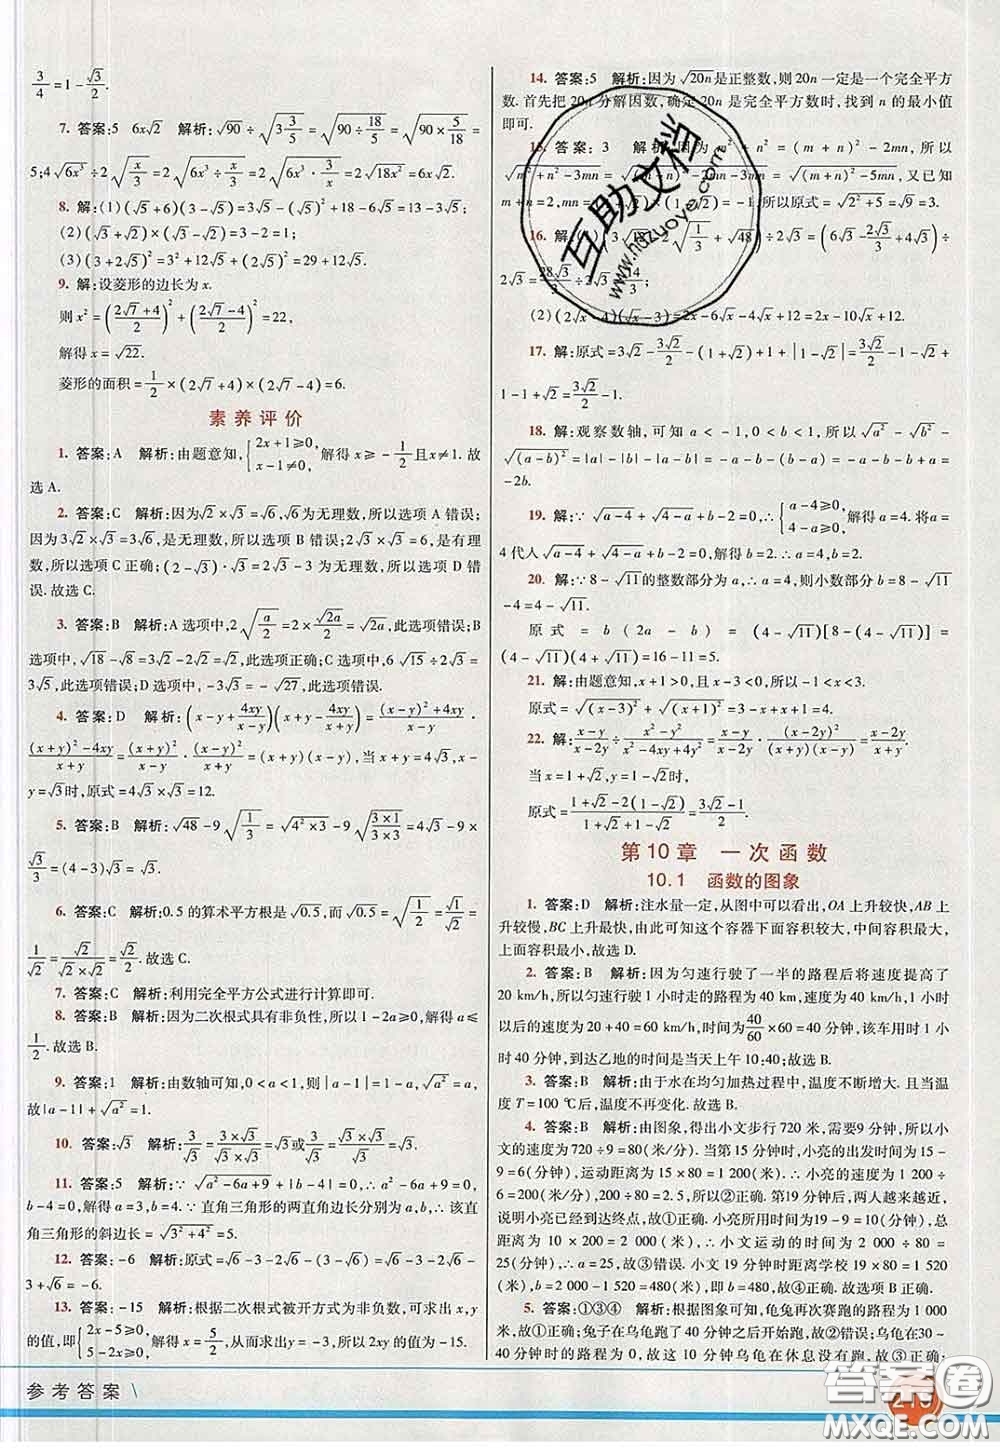 3/4=1-√3/2.
7. 答案:5 6√2 解析:√90÷√(3 3/5)=√(90÷18/5)=√(90×5/18)=
5;4√(6x³)÷2√(x/3)=2√(6x³÷x/3)=2√(6x³·3/x)=2√(18x²)=6x√2.
8. 解:(1)(√5+6)(3-√5)=3√5-(√5)²+18-6√5=13-3√5;
(2)(√3+√2)×(√3-√2)=3-2=1;
(3)(√12+3+2√5)²=12+12√5+(2√5)²=29+12√5.
9. 解:设菱形的边长为x.
则x²=((2√7+4)/2)²+((2√7-4)/2)²=22,
解得x=√22.
菱形的面积=1/2×(2√7+4)×(2√7-4)=6.
素养评价
1. 答案:A 解析:由题意知,{2x+1≥0, x-1≠0, 解得x≥-1/2且x≠1.故
选A.
2. 答案:C 解析:因为√2×√3=√6,√6为无理数,所以选项A错误;
因为3√2×√3=3√6,是无理数,所以选项B错误;2√3×√3=6,是有理
数,所以选项C正确;(2-√3)·√3=2√3-3为无理数,所以选项D错
误.故选C.
3. 答案:B 解析:A选项中,2√(a/2)=2×√(2a)/2=√(2a),此选项错误;B
选项中,√18-√8=3√2-2√2=√2,此选项正确;C选项中6√15÷2√3=
3√5,此选项错误;D选项中,-3√3=-√27,此选项错误.
4. 答案:D 解析:(x-y+4xy/(x-y))(x+y-4xy/(x+y))=((x-y)²+4xy)/(x-y)·
((x+y)²-4xy)/(x+y)=(x+y)²/(x-y)·(x-y)²/(x+y)=(x+y)(x-y),当x+y=4√3,x-
y=√3时,原式=4√3×√3=12.
5. 答案:B 解析:√48-9√(1/3)=√(4²×3)-9√((3×1)/(3×3))=4√3-9×
√3/3=(4-3)√3=√3.
6. 答案:C 解析:0.5的算术平方根是√0.5,而√0.5=√(1/2)=√1/√2=
1/√2=√2/(√2×√2)=√2/2.故选C.
7. 答案:C 解析:利用完全平方公式进行计算即可.
8. 答案:B 解析:因为二次根式具有非负性,所以1-2a≥0,解得a≤
1/2.故选B.
9. 答案:1 解析:由数轴可知,0<a<1,则|a-1|=1-a,√a²=a,
故|a-1|+√a²=1.
10. 答案:√3 解析:3/√3=(3×√3)/(√3×√3)=√3或3/√3=(√3×√3)/√3=√3.
11. 答案:5 解析:∵√(a²-6a+9)+|b-4|=0,∴a²-6a+9=0,b-4
=0,解得a=3,b=4.∵直角三角形的两直角边长分别为a,b,∴该直
角三角形的斜边长=√(3²+4²)=5.
12. 答案:-6 解析:原式=√6-3-2√6-(3-√6)=√6-3-2√6
-3+√6=-6.
13. 答案:-15 解析:根据二次根式被开方式为非负数,可求出x,y
的值,即{2x-5≥0, 5-2x≥0,解得x=5/2,从而求出y=-3,所以2xy的值为-15.
14. 答案:5 解析:因为√20n是正整数,则20n一定是一个完全平方
数.首先把20n分解因数,确定20n是完全平方数时,找到n的最小值
即可.
15. 答案:3 解析:因为m²+n²=(m+n)²-2mn,所以
√(m²+n²-3mn)=√((m+n)²-2mn-3mn)=√((m+n)²-5mn),又已知
m+n=2,mn=(1+√2)×(1-√2)=-1,所以原式=√(2²+5)=√9=3.
16. 解:(1)(3√12-2√(1/3)+√48)÷2√3=(6√3-2√3/3+4√3)÷
2√3=28√3/3÷2√3=14/3;
(2)(2√x-4)(√x-3)=2x-6√x-4√x+12=2x-10√x+12.
17. 解:原式=3√2-3√2/2-(1+√2)+1+|1-√2|=3√2/2-1-√2+
1-1+√2=3√2/2-1.
18. 解:观察数轴,可知a<-1,0<b<1,所以√a²-√b²-
√((a-b)²)=|a|-|b|-|a-b|=-a-b-(b-a)=-a-b-b+a=
-2b.
19. 解:∵√(a-4)+√(4-a)+b-2=0,∴{a-4≥0, 4-a≥0,解得a=4.将a=
4代入√(a-4)+√(4-a)+b-2=0,解得b=2.∴a=4,b=2.
20. 解:∵8-√11的整数部分为a,∴a=4,则小数部分b=8-√11
-4=4-√11,
原式=b(2a-b)=(4-√11)[8-(4-√11)]=
(4-√11)(4+√11)=16-11=5.
21. 解:由题意知,x+1>0,且x-3<0,所以-1<x<3.
原式=√((x-3)²)+√((x+1)²)=3-x+x+1=4.
22. 解:(x-y)/(x-2y)÷(x²-y²)/(x²-4xy+4y²)=(x-y)/(x-2y)·(x-2y)²/((x+y)(x-y))=(x-2y)/(x+y).
当x=1+√2,y=1-√2时,
原式=(1+√2-2(1-√2))/(1+√2+1-√2)=(3√2-1)/2.
第10章 一次函数
10.1 函数的图象
1. 答案:D 解析:注水量一定,从图中可以看出,OA上升较快,AB上
升较慢,BC上升最快,由此可知这个容器下面容积较大,中间容积最大,
上面容积最小,故选D.
2. 答案:B 解析:因为匀速行驶了一半的路程后将速度提高了
20 km/h,所以匀速行驶1小时走的路程为40 km,速度为40 km/h,1小时
以后的速度为20+40=60 km/h,时间为40/60×60=40分钟,该车用时1小
时40分钟,到达乙地的时间是当天上午10:40;故选B.
3. 答案:B 解析:由于水在均匀加热过程中,温度不断增大.且当温
度T=100 ℃后,温度不再变化.故选B.
4. 答案:B 解析:由图象,得出小文步行720米,需要9分钟,所以小
文的速度为720÷9=80(米/分).当第15分钟时,小亮的出发时间为15
-9=6(分钟),运动距离为15×80=1 200(米),∴小亮的速度为
1 200÷6=200(米/分),200÷80=2.5,所以②正确.当第19分钟后,两人越来越近,
说明小亮已经到达终点,故①正确.小亮所用时间为19-9=10(分钟),
10×200=2 000(米),∴小文运动的时间为2 000÷80=25(分钟),
∴a=25,故③错误.小文19分钟时距离学校19×80=1 520
(米),b=2 000-1 520=480(米),即b=480,故④正确.故选项B正确.
5. 答案:①③④ 解析:根据图象可知,龟兔再次赛跑的路程为1 000
米,故①正确;兔子在乌龟跑了40分钟后开始跑,故②错误;乌龟在30~
40分钟时的路程为0,故这10分钟乌龟在休息没有跑,故③正确;
参考答案
互助文档
www.hdzuoye.com
答案圈
MXQE.COM